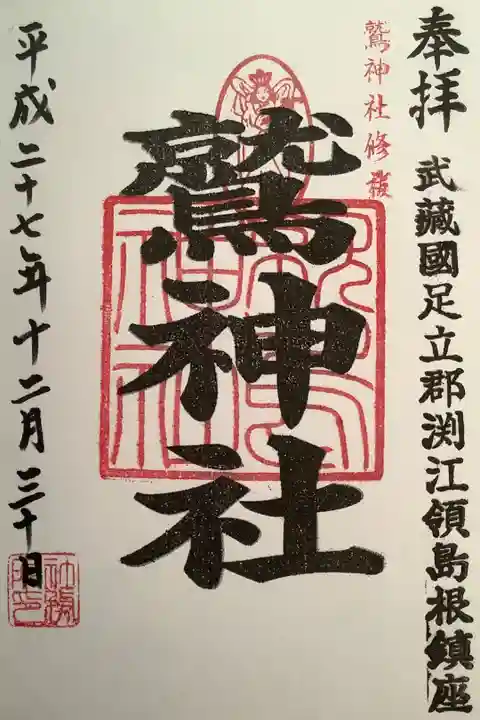 奉拝
武藏國足立郡渕江領島根鎮座
鷲神社修祓
鷲神社
平成二十七年十二月三十日